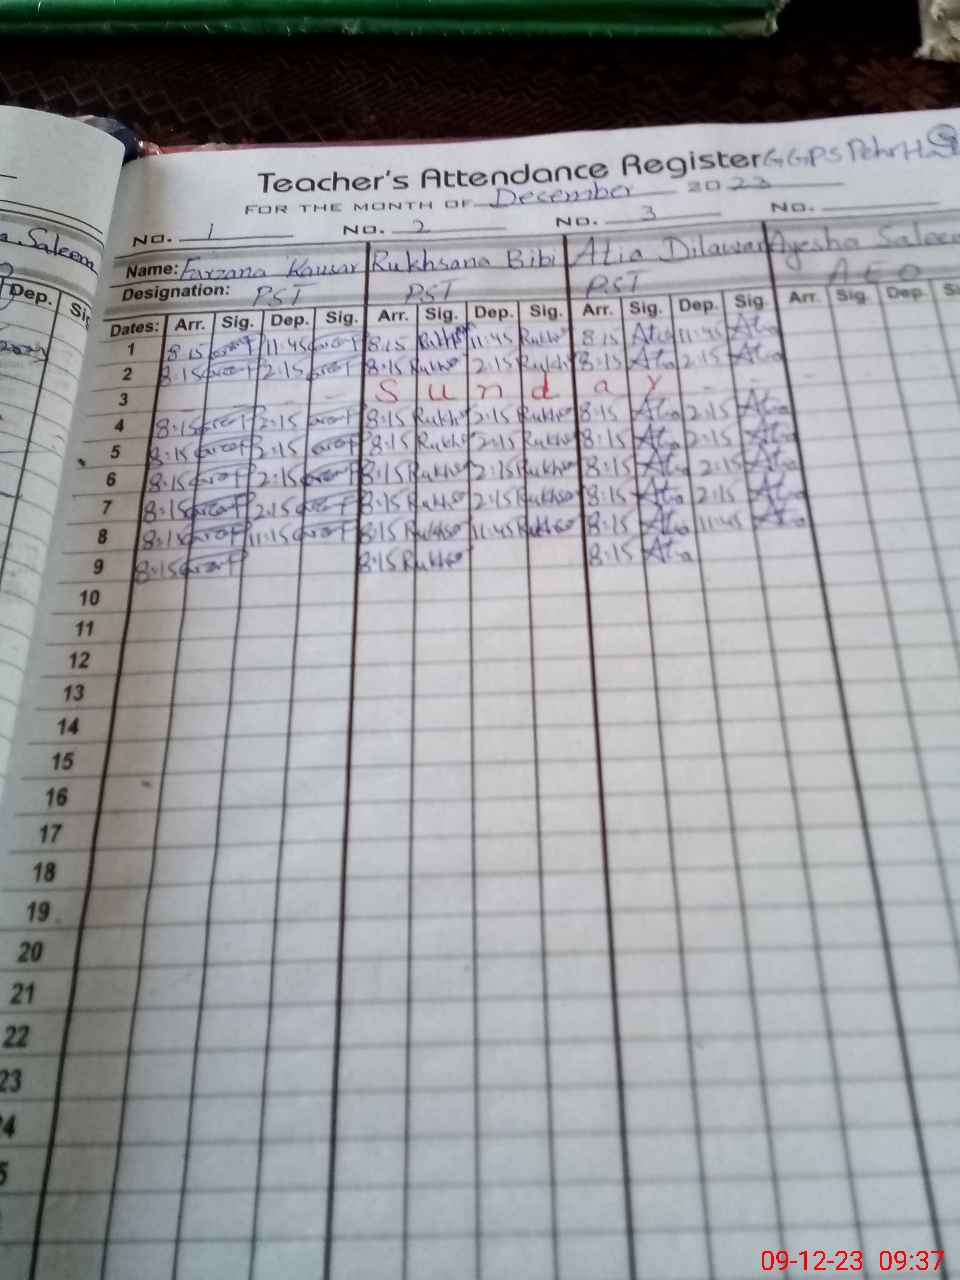 Teacher's Attendance Register GGPS
FOR THE MONTH OF Desember 2023
No. 1 No. 2 No. 3 No.
a Saleem Name: Farzana Kausar Rukhsana Bibi Atia Dilawar Ayesha Saleem
Designation: PST PST PST AEO
Dep. Sig Dates: Arr. Sig. Dep. Sig. Arr. Sig. Dep. Sig. Arr. Sig. Dep. Sig. Arr. Sig. Dep. Si
1 8:15 11:45 8:15 Rukhs 11:45 Rukhs 8:15 Atia 11:45 Atia
2 8:15 2:15 8:15 Rukhs 2:15 Rukhs 8:15 Atia 2:15 Atia
3 Sunday
4 8:15 2:15 8:15 Rukhs 2:15 Rukhs 8:15 Atia 2:15 Atia
5 8:15 2:15 8:15 Rukhs 2:15 Rukhs 8:15 Atia 2:15 Atia
6 8:15 2:15 8:15 Rukhs 2:15 Rukhs 8:15 Atia 2:15 Atia
7 8:15 2:15 8:15 Rukhs 2:15 Rukhs 8:15 Atia 2:15 Atia
8 8:15 11:15 8:15 Rukhs 11:45 Rukhs 8:15 Atia 11:45 Atia
9 8:15 8:15 Rukhs 8:15 Atia
10
11
12
13
14
15
16
17
18
19
20
21
22
23
4
5
09-12-23 09:37